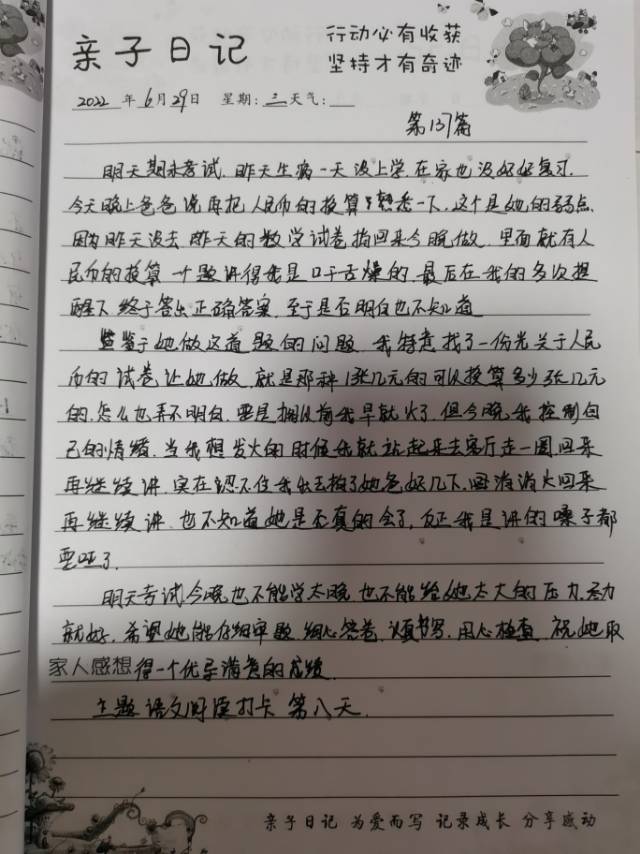 亲子日记
行动必有收获
坚持才有奇迹
2022年6月29日 星期:三 天气:
第137篇
明天期末考试,昨天生病一天没上学,在家也没好好复习,
今天晚上爸爸说再把人民币的换算熟悉一下,这个是她的弱点,
因为昨天没去,昨天的数学试卷捎回来今晚做,里面就有人
民币的换算,一个题讲得我是口干舌燥的,最后在我的多次提
醒下,终于答出正确答案,至于是否明白也不知道
鉴于她做这道题的问题,我特意找了一份光关于人民
币的试卷让她做,就是那种1张几元的可以换算多少张几元
的,怎么也弄不明白,要是搁以前我早就火了,但今晚我控制自
己的情绪,当我想发火的时候我就站起来去客厅走一圈,回来
再继续讲,实在忍不住我出去拍了她爸好几下,消消火回来
再继续讲,也不知道她是否真的会了,反正我是讲的嗓子都
要哑了,
明天考试今晚也不能学太晚,也不能给她太大的压力,尽力
就好,希望她能仔细审题,细心答卷,认真书写,用心检查,祝她取
家人感想 得一个优异满意的成绩
主题语文阅读打卡 第八天,
亲子日记 为爱而写 记录成长 分享感动